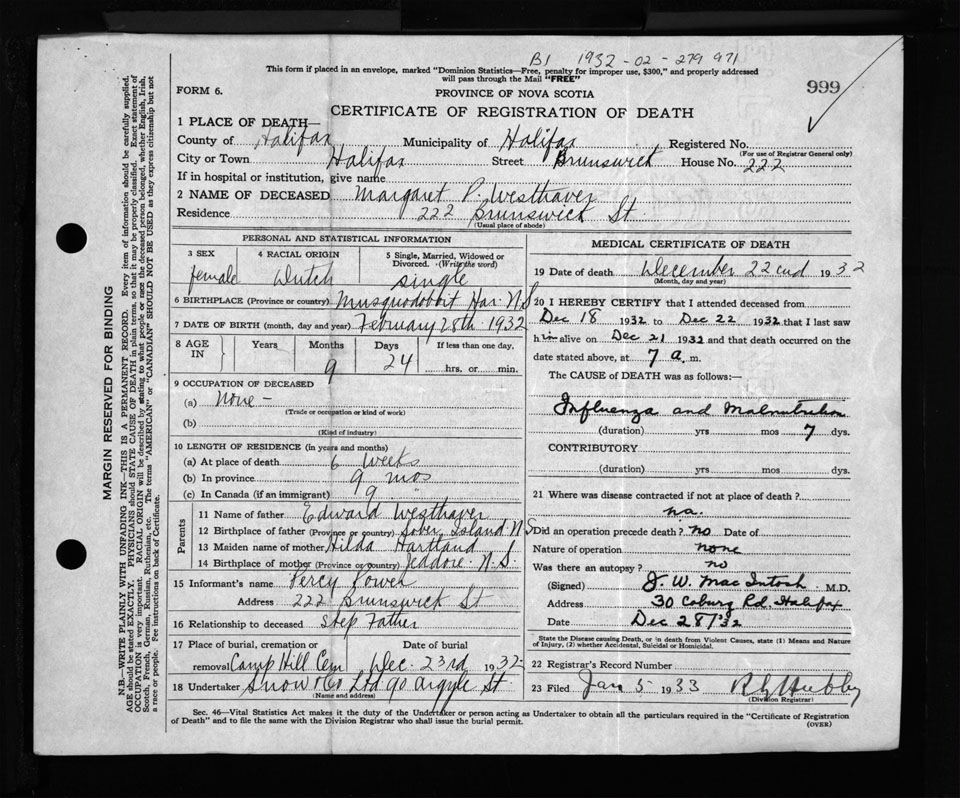 B1 1932-02-279 971
This form if placed in an envelope, marked "Dominion Statistics—Free, penalty for improper use, $300," and properly addressed
will pass through the Mail "FREE"
999
FORM 6.
PROVINCE OF NOVA SCOTIA
CERTIFICATE OF REGISTRATION OF DEATH
1 PLACE OF DEATH—
County of Halifax Municipality of Halifax Registered No.
(For use of Registrar General only)
City or Town Halifax Street Brunswick House No. 222
If in hospital or institution, give name
2 NAME OF DECEASED Margaret P. Westhaver
Residence 222 Brunswick St
(Usual place of abode)
PERSONAL AND STATISTICAL INFORMATION
3 SEX 4 RACIAL ORIGIN 5 Single, Married, Widowed or
Divorced. (Write the word)
female Dutch single
6 BIRTHPLACE (Province or country) Musquodoboit Har. N.S
7 DATE OF BIRTH (month, day and year) February 28th 1932
8 AGE IN Years Months Days If less than one day,
9 24 hrs. or min.
9 OCCUPATION OF DECEASED
(a) None -
(Trade or occupation or kind of work)
(b)
(Kind of industry)
10 LENGTH OF RESIDENCE (in years and months)
(a) At place of death 6 weeks
(b) In province 9 mos
(c) In Canada (if an immigrant) 9 "
Parents
11 Name of father Edward Westhaver
12 Birthplace of father (Province or country) Sober Island N S
13 Maiden name of mother Hilda Hartland
14 Birthplace of mother (Province or country) Jeddore N.S.
15 Informant's name Percy Power
Address 222 Brunswick St
16 Relationship to deceased Step Father
17 Place of burial, cremation or removal Camp Hill Cem Date of burial Dec. 23rd 1932
18 Undertaker Snow & Co Ltd 90 Argyle St
(Name and address)
MEDICAL CERTIFICATE OF DEATH
19 Date of death December 22nd 1932
(Month, day and year)
20 I HEREBY CERTIFY that I attended deceased from
Dec 18 1932 to Dec 22 1932 that I last saw
him alive on Dec 21 1932 and that death occurred on the
date stated above, at 7 a. m.
The CAUSE of DEATH was as follows:—
Influenza and Malnutrition
(duration) yrs mos 7 dys.
CONTRIBUTORY
(duration) yrs mos dys.
21 Where was disease contracted if not at place of death?
na.
Did an operation precede death? no Date of
Nature of operation none
Was there an autopsy? no
(Signed) J. W. MacIntosh M.D.
Address 30 Coburg Rd. Halifax
Date Dec 28/32
State the Disease causing Death, or in death from Violent Causes, state (1) Means and Nature
of Injury, (2) whether Accidental, Suicidal or Homicidal.
22 Registrar's Record Number
23 Filed Jan 5 1933
(Division Registrar)
Sec. 46—Vital Statistics Act makes it the duty of the Undertaker or person acting as Undertaker to obtain all the particulars required in the "Certificate of Registration
of Death" and to file the same with the Division Registrar who shall issue the burial permit.
(OVER)
MARGIN RESERVED FOR BINDING
N.B.—WRITE PLAINLY WITH UNFADING INK—THIS IS A PERMANENT RECORD. Every item of information should be carefully supplied.
AGE should be stated EXACTLY. PHYSICIANS should STATE CAUSE OF DEATH in plain terms, so that it may be properly classified. Exact statement of
OCCUPATION is very important. RACIAL ORIGIN will be described by stating to what people or race the deceased person belonged, whether English, Irish,
Scotch, French, German, Russian, Ruthenian, etc. The terms "AMERICAN" or "CANADIAN" SHOULD NOT BE USED as they express citizenship but not
a race or people. See instructions on back of Certificate.